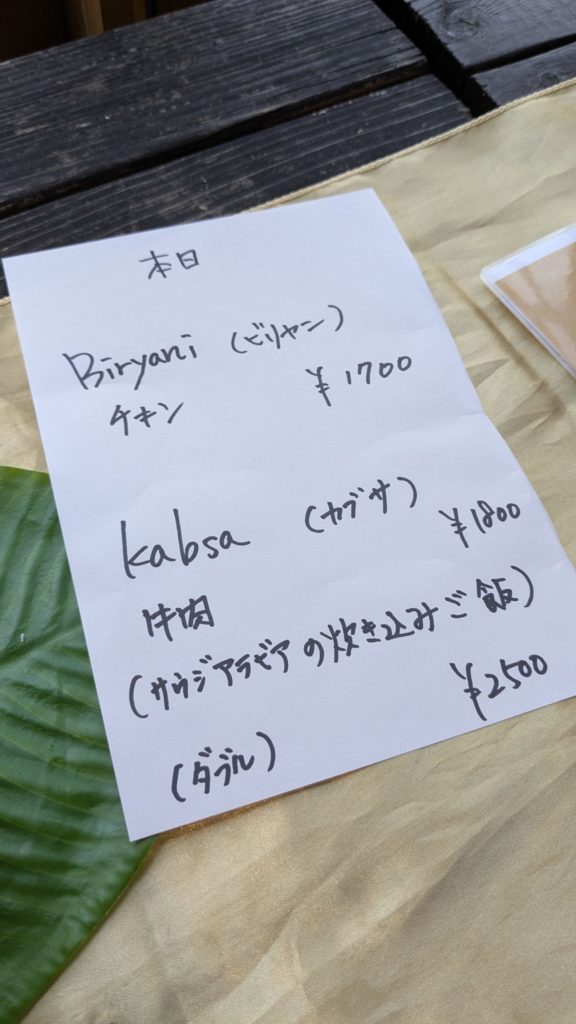 本日
Biryani (ビリヤン)
チキン ¥1700
kabsa (カブサ) ¥1800
牛肉
(サウジアラビアの炊き込みご飯)
(ダブル) ¥2500